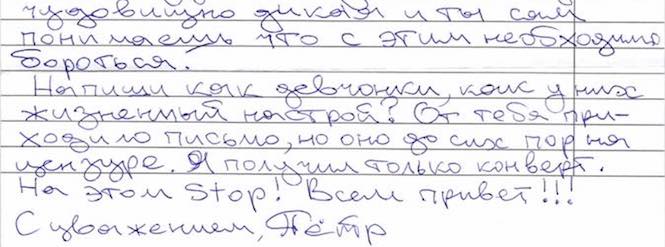 чудовищно дикая и ты сам
понимаешь что с этим необходимо
бороться.
Напиши как девчонки, как у них
жизненный настрой? От тебя при-
ходило письмо, но оно до сих пор на
цензуре. Я получил только конверт.
На этом Stop! Всем привет!!!
С уважением, Пётр